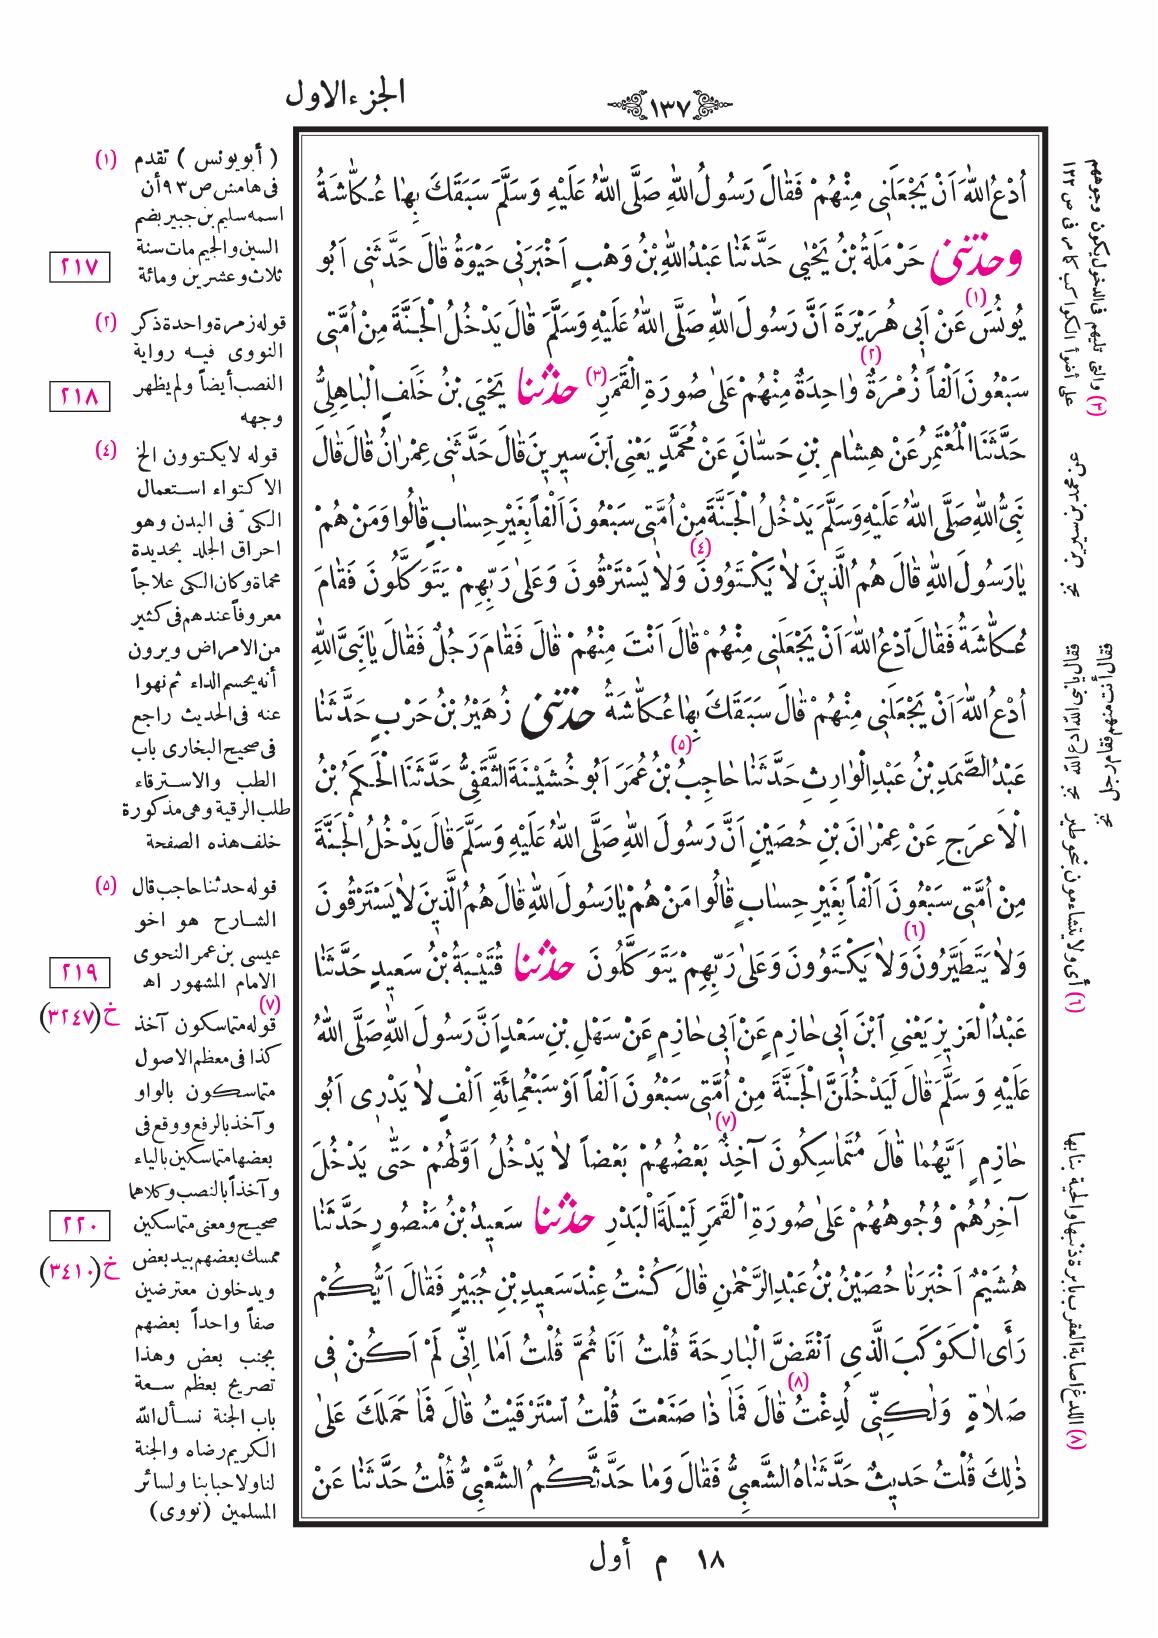 الجزء الاول
١٣٧
اُدْعُ اللّٰهَ اَنْ يَجْعَلَنِى مِنْهُمْ فَقَالَ رَسُولُ اللّٰهِ صَلَّى اللّٰهُ عَلَيْهِ وَسَلَّمَ سَبَقَكَ بِهَا عُكَّاشَةُ
وحدثنى حَرْمَلَةُ بْنُ يَحْيٰى حَدَّثَنَا عَبْدُ اللّٰهِ بْنُ وَهْبٍ اَخْبَرَنِى حَيْوَةُ قَالَ حَدَّثَنِى اَبُو
يُونُسَ (١) عَنْ اَبِى هُرَيْرَةَ اَنَّ رَسُولَ اللّٰهِ صَلَّى اللّٰهُ عَلَيْهِ وَسَلَّمَ قَالَ يَدْخُلُ الْجَنَّةَ مِنْ اُمَّتِى
سَبْعُونَ اَلْفاً زُمْرَةٌ (٢) وَاحِدَةٌ مِنْهُمْ عَلىٰ صُورَةِ الْقَمَرِ (٣) حدثنا يَحْيَى بْنُ خَلَفٍ الْبَاهِلِىُّ
حَدَّثَنَا الْمُعْتَمِرُ عَنْ هِشَامِ بْنِ حَسَّانٍ عَنْ مُحَمَّدٍ يَعْنِى ابْنَ سِيرِينَ قَالَ حَدَّثَنِى عِمْرَانُ قَالَ قَالَ
نَبِىُّ اللّٰهِ صَلَّى اللّٰهُ عَلَيْهِ وَسَلَّمَ يَدْخُلُ الْجَنَّةَ مِنْ اُمَّتِى سَبْعُونَ اَلْفاً بِغَيْرِ حِسَابٍ قَالُوا وَمَنْ هُمْ
يَا رَسُولَ اللّٰهِ قَالَ هُمُ الَّذِينَ لَا يَكْتَوُونَ (٤) وَلَا يَسْتَرْقُونَ وَعَلىٰ رَبِّهِمْ يَتَوَكَّلُونَ فَقَامَ
عُكَّاشَةُ فَقَالَ ادْعُ اللّٰهَ اَنْ يَجْعَلَنِى مِنْهُمْ قَالَ اَنْتَ مِنْهُمْ قَالَ فَقَامَ رَجُلٌ فَقَالَ يَا نَبِىَّ اللّٰهِ
اُدْعُ اللّٰهَ اَنْ يَجْعَلَنِى مِنْهُمْ قَالَ سَبَقَكَ بِهَا عُكَّاشَةُ حدثنى زُهَيْرُ بْنُ حَرْبٍ حَدَّثَنَا
عَبْدُ الصَّمَدِ بْنُ عَبْدِ الْوَارِثِ حَدَّثَنَا حَاجِبُ (٥) بْنُ عُمَرَ اَبُو خُشَيْنَةَ الثَّقَفِىُّ حَدَّثَنَا الْحَكَمُ بْنُ
الْاَعْرَجِ عَنْ عِمْرَانَ بْنِ حُصَيْنٍ اَنَّ رَسُولَ اللّٰهِ صَلَّى اللّٰهُ عَلَيْهِ وَسَلَّمَ قَالَ يَدْخُلُ الْجَنَّةَ
مِنْ اُمَّتِى سَبْعُونَ اَلْفاً بِغَيْرِ حِسَابٍ قَالُوا مَنْ هُمْ يَا رَسُولَ اللّٰهِ قَالَ هُمُ الَّذِينَ لَا يَسْتَرْقُونَ
وَلَا يَتَطَيَّرُونَ (٦) وَلَا يَكْتَوُونَ وَعَلىٰ رَبِّهِمْ يَتَوَكَّلُونَ حدثنا قُتَيْبَةُ بْنُ سَعِيدٍ حَدَّثَنَا
عَبْدُ الْعَزِيزِ يَعْنِى ابْنَ اَبِى حَازِمٍ عَنْ اَبِى حَازِمٍ عَنْ سَهْلِ بْنِ سَعْدٍ اَنَّ رَسُولَ اللّٰهِ صَلَّى اللّٰهُ
عَلَيْهِ وَسَلَّمَ قَالَ لَيَدْخُلَنَّ الْجَنَّةَ مِنْ اُمَّتِى سَبْعُونَ اَلْفاً اَوْ سَبْعُمِائَةِ اَلْفٍ لَا يَدْرِى اَبُو
حَازِمٍ اَيَّهُمَا قَالَ مُتَمَاسِكُونَ (٧) آخِذٌ بَعْضُهُمْ بَعْضاً لَا يَدْخُلُ اَوَّلُهُمْ حَتّٰى يَدْخُلَ
آخِرُهُمْ وُجُوهُهُمْ عَلىٰ صُورَةِ الْقَمَرِ لَيْلَةَ الْبَدْرِ حدثنا سَعِيدُ بْنُ مَنْصُورٍ حَدَّثَنَا
هُشَيْمٌ اَخْبَرَنَا حُصَيْنُ بْنُ عَبْدِ الرَّحْمٰنِ قَالَ كُنْتُ عِنْدَ سَعِيدِ بْنِ جُبَيْرٍ فَقَالَ اَيُّكُمْ
رَأَى الْكَوْكَبَ الَّذِى انْقَضَّ الْبَارِحَةَ قُلْتُ اَنَا ثُمَّ قُلْتُ اَمَا اِنِّى لَمْ اَكُنْ فِى
صَلَاةٍ وَلٰكِنِّى لُدِغْتُ (٨) قَالَ فَمَا ذَا صَنَعْتَ قُلْتُ اسْتَرْقَيْتُ قَالَ فَمَا حَمَلَكَ عَلىٰ
ذٰلِكَ قُلْتُ حَدِيثٌ حَدَّثَنَاهُ الشَّعْبِىُّ فَقَالَ وَمَا حَدَّثَكُمُ الشَّعْبِىُّ قُلْتُ حَدَّثَنَا عَنْ
(١) ( أبو يونس ) تقدم
فى هامش ص ٩٣ أن
اسمه سليم بن جبير بضم
السين والجيم مات سنة
ثلاث وعشرين ومائة
٢١٧
(٢) قوله زمرة واحدة ذكر
النووى فيه رواية
النصب أيضاً ولم يظهر
وجهه
٢١٨
(٤) قوله لا يكتوون الخ
الاكتواء استعمال
الكىّ فى البدن وهو
احراق الجلد بحديدة
محماة وكان الكى علاجاً
معروفاً عندهم فى كثير
من الامراض ويرون
أنه يحسم الداء ثم نهوا
عنه فى الحديث راجع
فى صحيح البخارى باب
الطب والاسترقاء
طلب الرقية وهى مذكورة
خلف هذه الصفحة
(٥) قوله حدثنا حاجب قال
الشارح هو اخو
عيسى بن عمر النحوى
الامام المشهور اه
٢١٩
خ (٣٢٤٧)
(٧) قوله متماسكون آخذ
كذا فى معظم الاصول
متماسكون بالواو
وآخذ بالرفع ووقع فى
بعضها متماسكين بالياء
وآخذاً بالنصب وكلاهما
صحيح ومعنى متماسكين
ممسك بعضهم بيد بعض
ويدخلون معترضين
صفاً واحداً بعضهم
بجنب بعض وهذا
تصريح بعظم سعة
باب الجنة نسأل الله
الكريم رضاه والجنة
لنا ولاحبابنا ولسائر
المسلمين (نووى)
٢٢٠
خ (٣٤١٠)
(٣) والتى تليهم فى الدخول يكون وجوههم
على أضوأ الكواكب كما مر فى ص ١٢٣
عن محمد بن سيرين نخ
فقال يا نبى الله ادع الله نخ
فقال أنت منهم فقام رجل نخ
(٦) أى ولا يتشاءمون بنحو طير
(٨) اللدغ اصابة العقرب بابرة ذنبها والحية بنابها
١٨ م أول